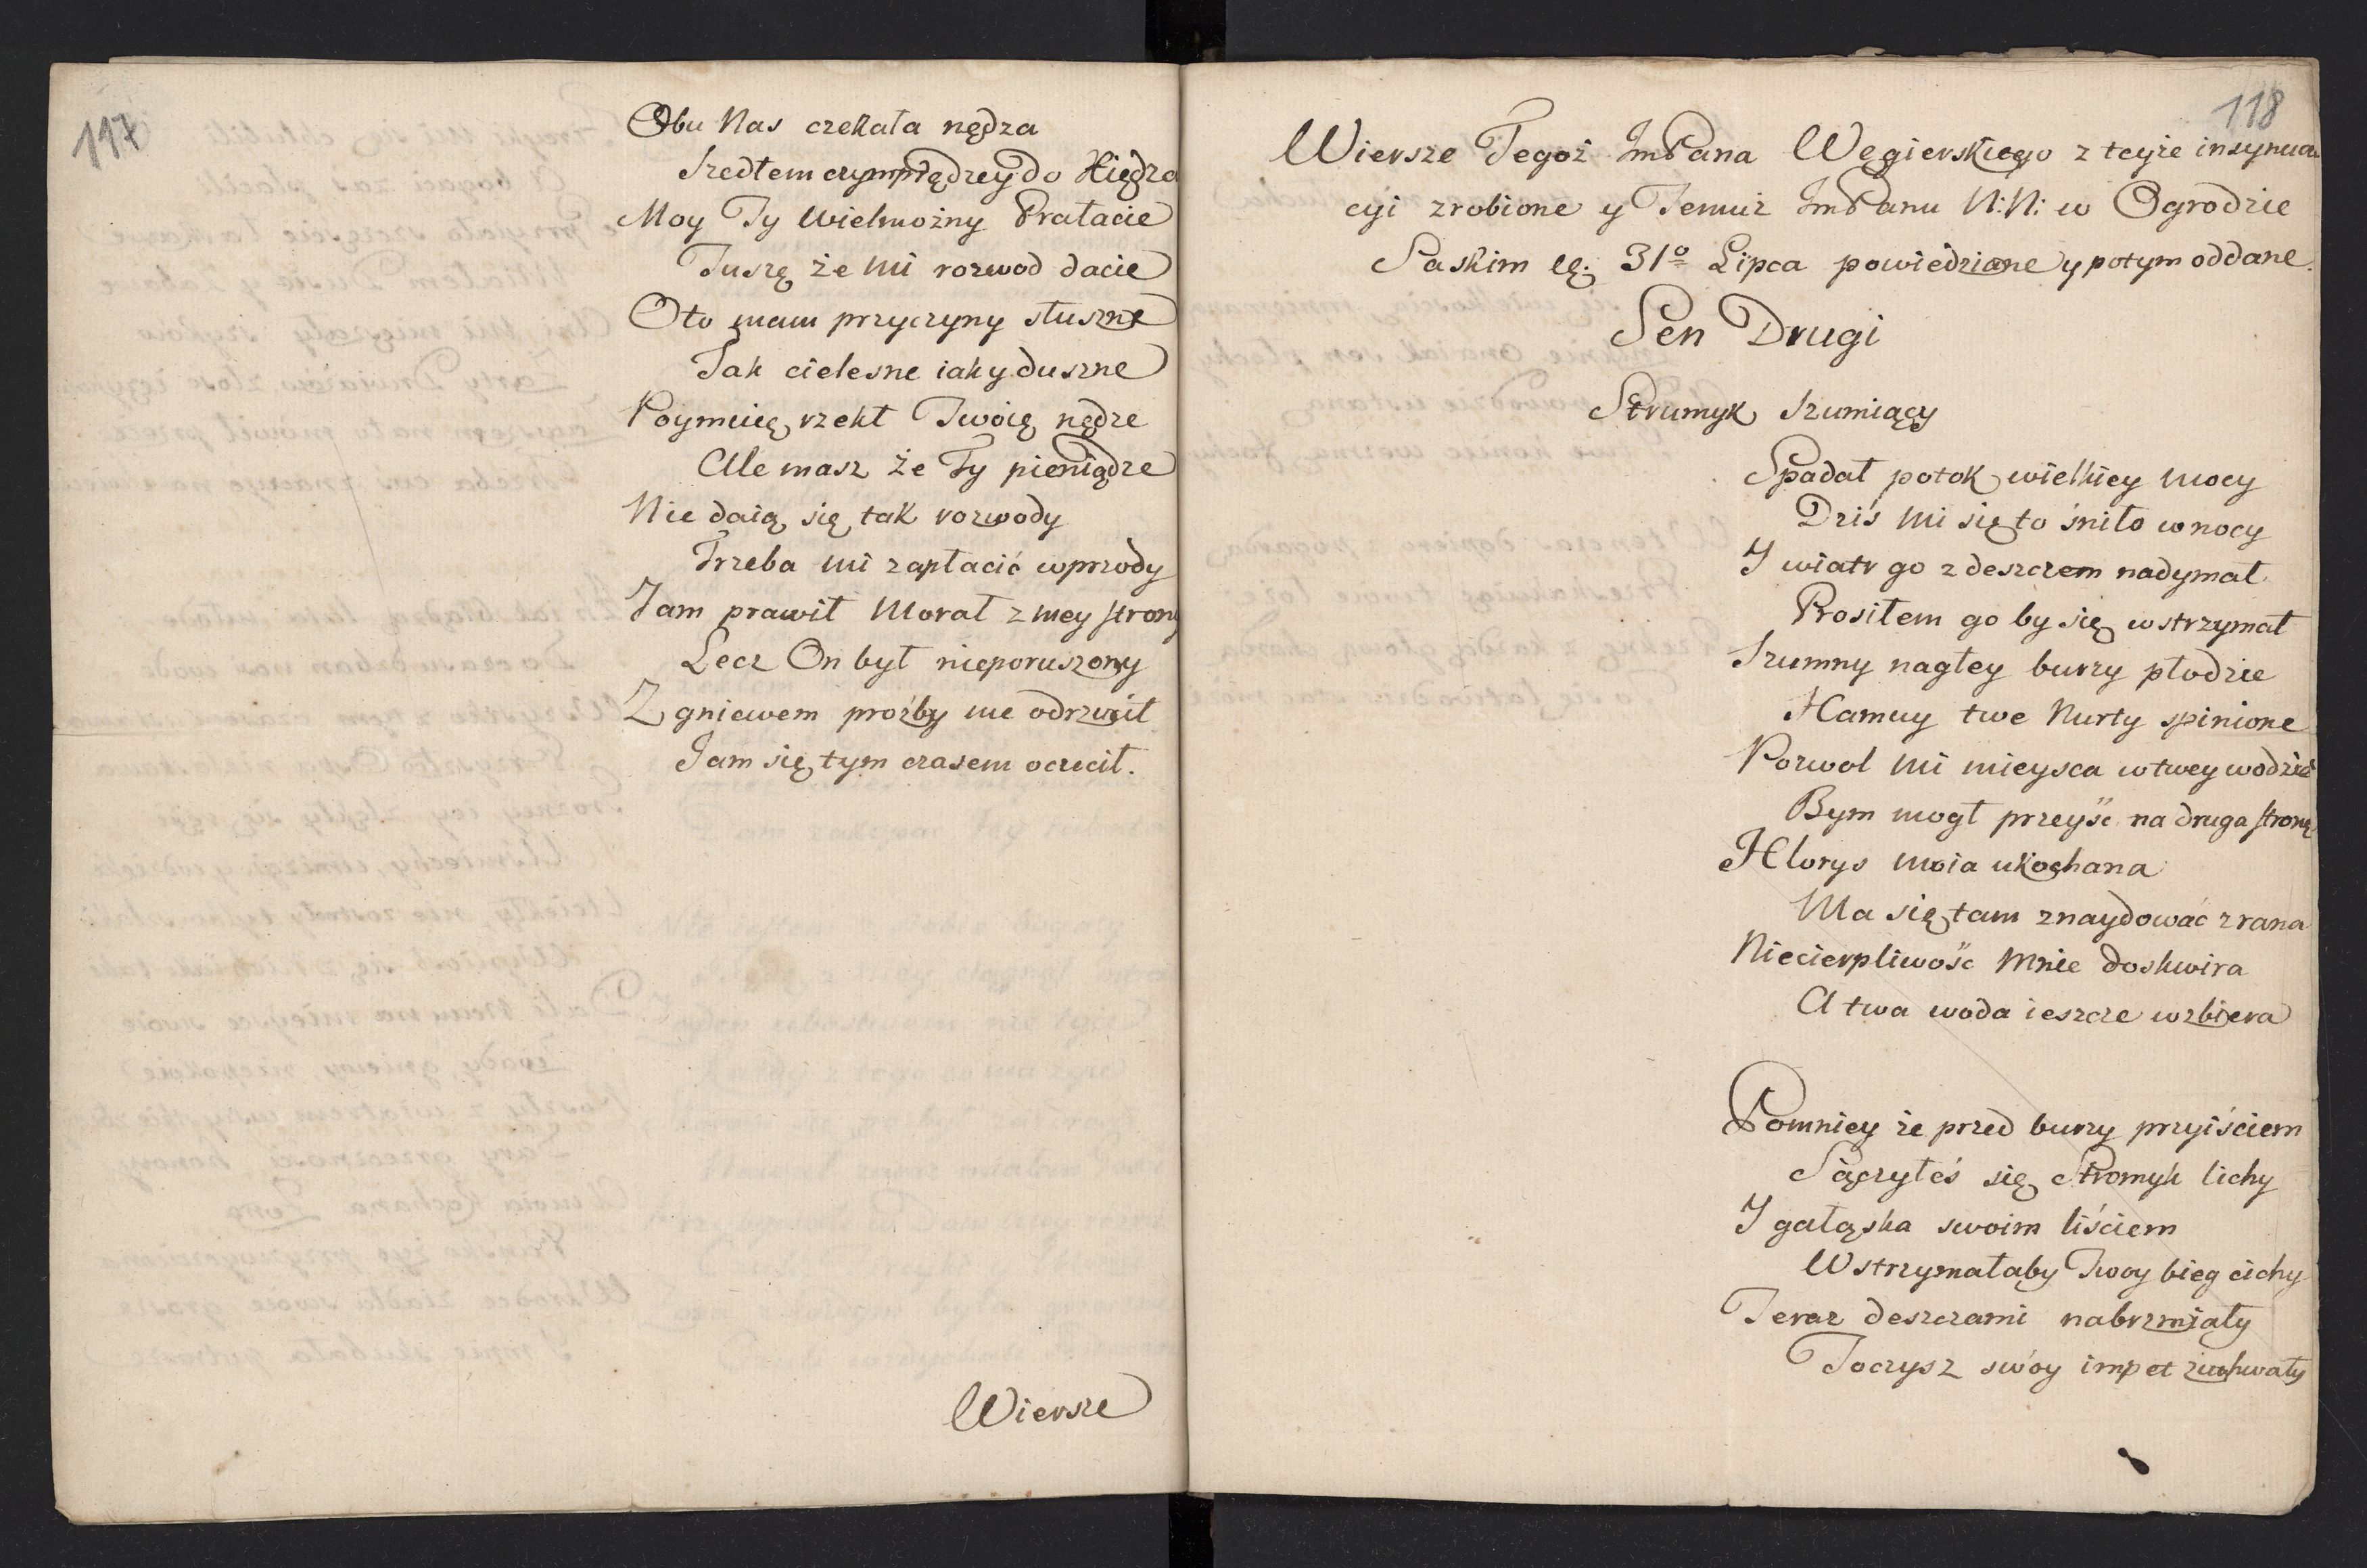 117
Obu Nas czekała nędza
Szedłem czymprędzey do Xiędza
Moy Ty Wielmożny Prałacie
Tuszę że Mi rozwod dacie
Oto mam przyczyny słuszne
Tak cielesne iak y duszne
Poymuię rzekł Twoię nędze
Ale masz że Ty pieniądze
Nie daią się tak rozwody
Trzeba mi zapłacić wprzody
Jam prawił Morał z mey strony
Lecz On był nieporuszony
Z gniewem proźby me odrzucił
Jam się tym czasem ocucił.
Wiersze
118
Wiersze Tegoż ImPana Węgierskiego z teyże insynua
cyi zrobione y Temuż ImPanu N: N: w Ogrodzie
Saskim 31º Lipca powiedziane y potym oddane.
Sen Drugi
Strumyk Szumiący
Spadał potok wielkiey mocy
Dziś Mi się to śniło w nocy
I wiatr go z deszczem nadymał
Prosiłem go by się wstrzymał
Szumny nagłey burzy płodzie
Hamuy twe Nurty spinione
Pozwol Mi mieysca w twey wodzie
Bym mogł przeyść na druga stronę
Klorys moia ukochana
Ma się tam znaydować z rana
Niecierpliwość Mnie doskwira
A twa woda ieszcze wzbiera
Pomniey że przed burzy przyiściem
Sączyłeś się Stromyk lichy
I gałąska swoim liściem
Wstrzymałaby Twoy bieg cichy
Teraz deszczami nabrzmiały
Toczysz swóy impet zuchwały